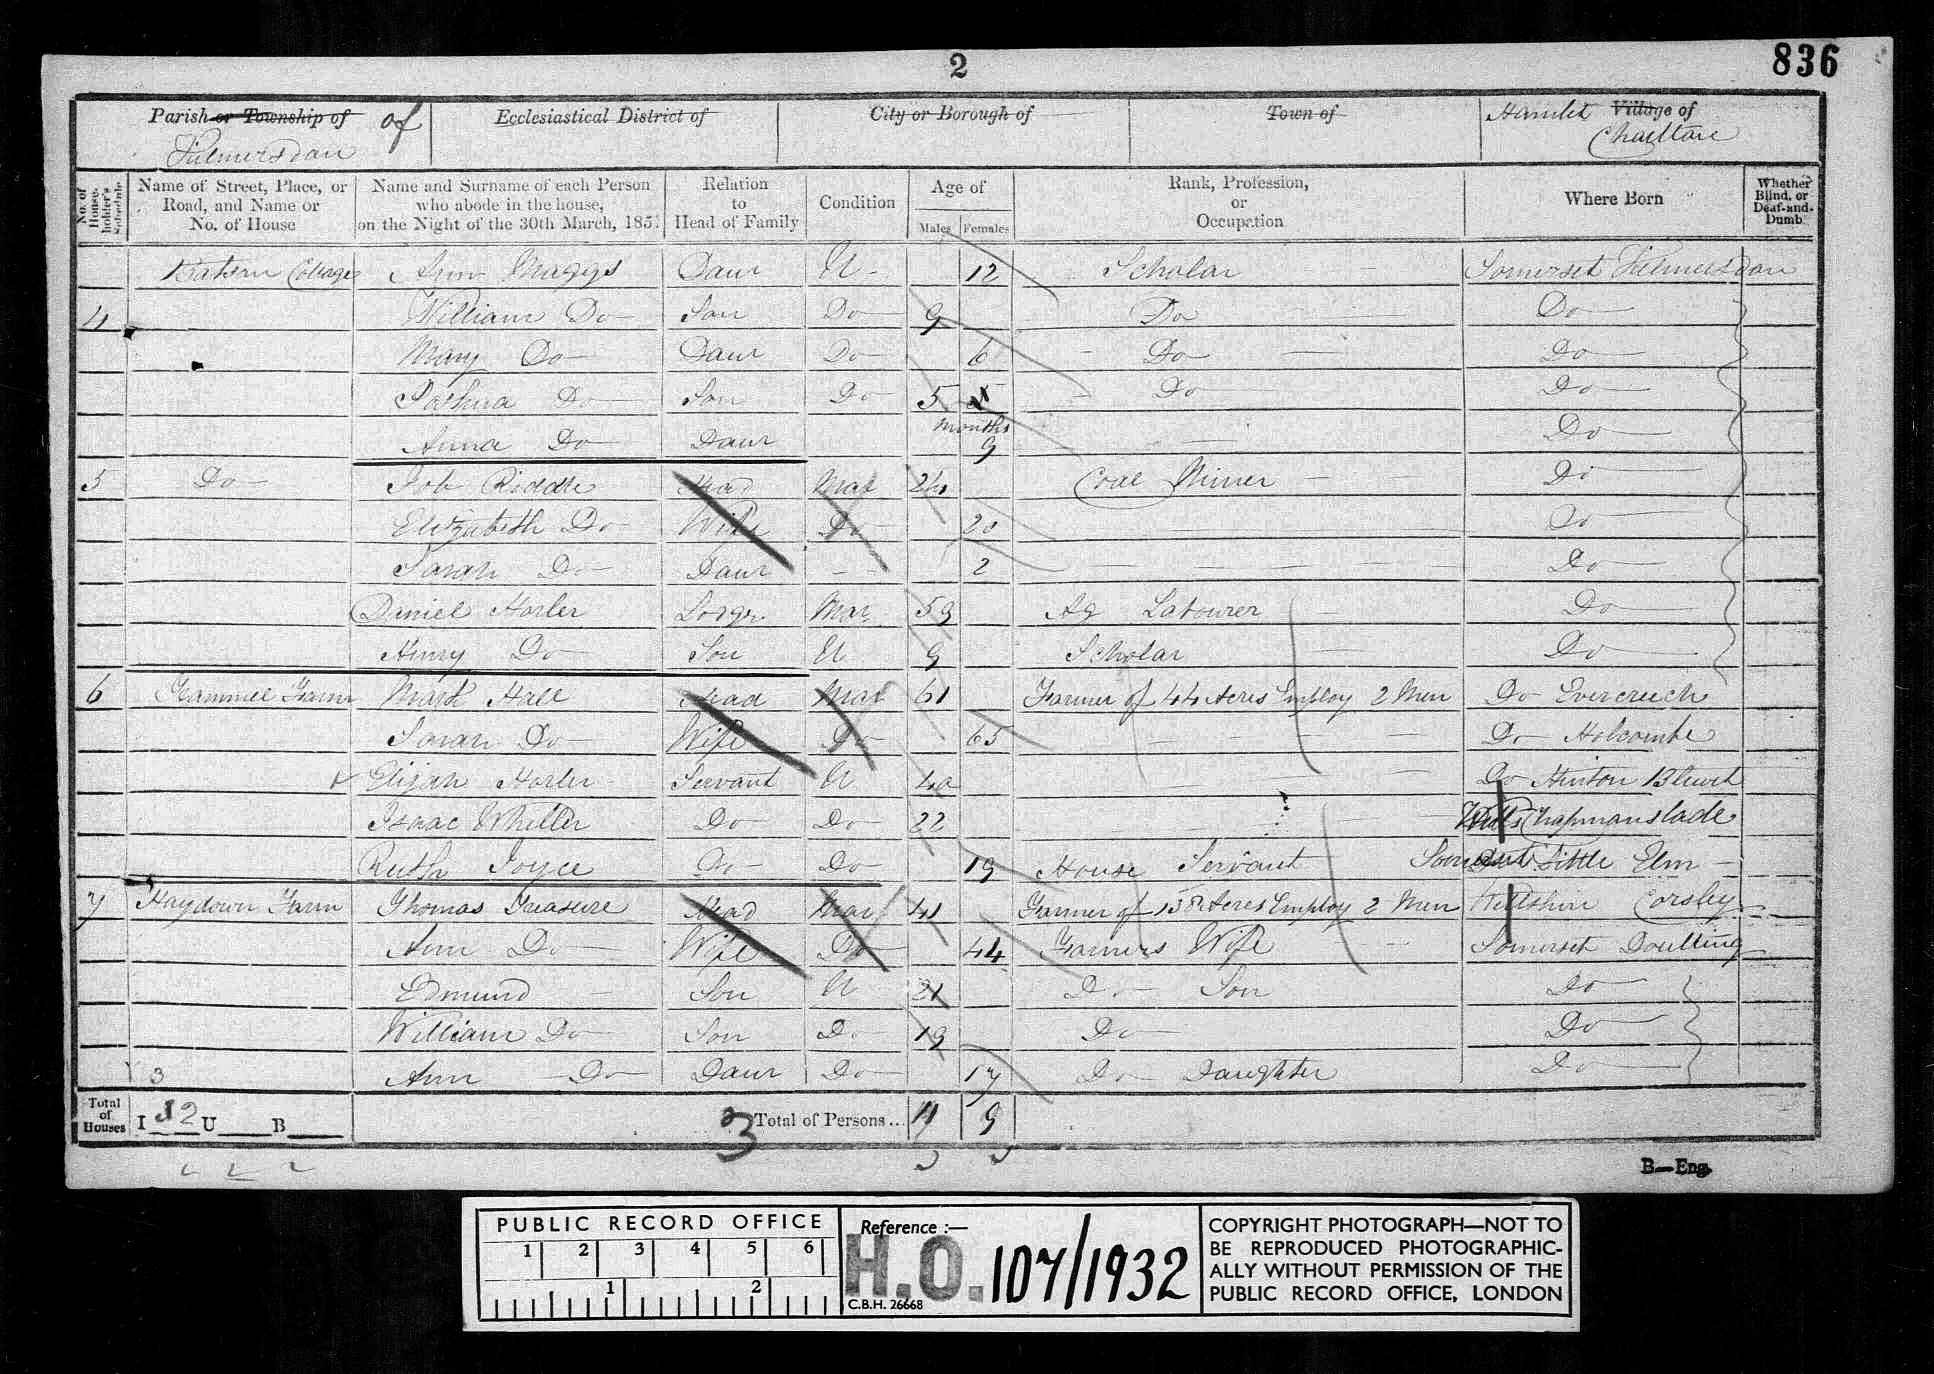 2
836
Parish or Township of of
Ecclesiastical District of
City or Borough of
Town of
Hamlet Village of
Kilmersdon
Charlton
No. of House-holder's Schedule
Name of Street, Place, or Road, and Name or No. of House
Name and Surname of each Person who abode in the house, on the Night of the 30th March, 1851
Relation to Head of Family
Condition
Age of
Males
Females
Rank, Profession, or Occupation
Where Born
Whether Blind, or Deaf-and-Dumb
Cottage Ann Maggs Daur U 12 Scholar Somerset Kilmersdon
4 William Do Son Do 9 Do Do
Mary Do Daur Do 6 Do Do
Joshua Do Son Do 5 Do Do
Anna Do Daur months 9 Do
5 Do Job Riddle Head Mar 24 Coal Miner Do
Elizabeth Do Wife Do 20 Do
Sarah Do Daur 2 Do
Daniel Horler Lodger Mar 59 Ag Labourer Do
Henry Do Son U 9 Scholar Do
6 Farm Mark Hall Head Mar 61 Farmer of 44 Acres Employ 2 Men Do Evercreech
Sarah Do Wife Do 65 Do Holcombe
Elijah Horler Servant U 40 Do Hinton Bluet
Isaac Do Do 22 Wilts Chapmanslade
Ruth Joyce Do Do 19 House Servant Somerset Little Elm
7 Haydown Farm Thomas Treasure Head Mar 41 Farmer of 138 Acres Employ 2 Men Wiltshire Corsley
Ann Do Wife Do 44 Farmers Wife Somerset Doulting
Edmund Son U 21 Do Son Do
William Do Son Do 19 Do Do
3 Ann Do Daur Do 17 Do Daughter Do
Total of Houses I 2 U B
3 Total of Persons... 11 9
B—Eng.
PUBLIC RECORD OFFICE
1 2 3 4 5 6
1 2
Reference :—
H.O. 107/1932
C.B.H. 26668
COPYRIGHT PHOTOGRAPH—NOT TO
BE REPRODUCED PHOTOGRAPHIC-
ALLY WITHOUT PERMISSION OF THE
PUBLIC RECORD OFFICE, LONDON